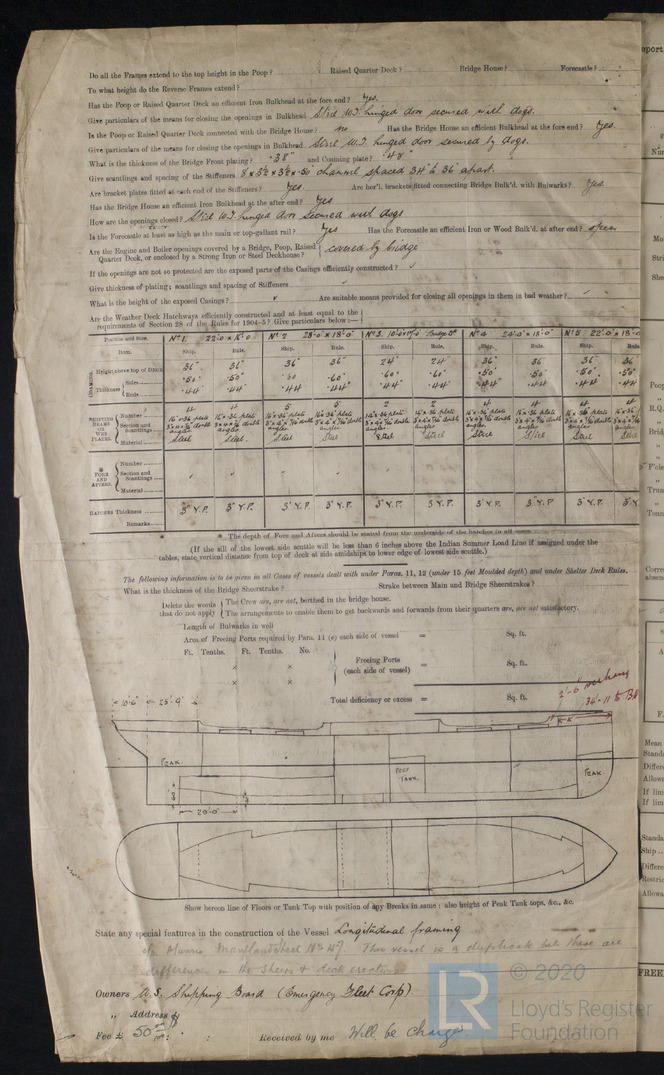 Do all the Frames extend to the top height in the Poop? Raised Quarter Deck? Bridge House? Forecastle?
To what height do the Reverse Frames extend?
Has the Poop or Raised Quarter Deck an efficient Iron Bulkhead at the fore end? Yes.
Give particulars of the means for closing the openings in Bulkhead Steel W.T. hinged door secured with dogs.
Is the Poop or Raised Quarter Deck connected with the Bridge House? no Has the Bridge House an efficient Bulkhead at the fore end? Yes.
Give particulars of the means for closing the openings in Bulkhead. Steel W.T. hinged door secured by dogs.
What is the thickness of the Bridge Front plating? .38" and Coaming plate? .48"
Give scantlings and spacing of the Stiffeners 8 x 3½ x 3½ x .50 channel spaced 34" to 36" apart.
Are bracket plates fitted at each end of the Stiffeners? Yes Are hor'l. brackets fitted connecting Bridge Bulk'd. with Bulwarks? Yes.
Has the Bridge House an efficient Iron Bulkhead at the after end? Yes
How are the openings closed? Steel W.T hinged door secured with dogs
Is the Forecastle at least as high as the main or top-gallant rail? Yes Has the Forecastle an efficient Iron or Wood Bulk'd. at after end? open
Are the Engine and Boiler openings covered by a Bridge, Poop, Raised Quarter Deck, or enclosed by a Strong Iron or Steel Deckhouse? covered by bridge
If the openings are not so protected are the exposed parts of the Casings efficiently constructed?
Give thickness of plating; scantlings and spacing of Stiffeners
What is the height of the exposed Casings? Are suitable means provided for closing all openings in them in bad weather?
Are the Weather Deck Hatchways efficiently constructed and at least equal to the
requirements of Section 28 of the Rules for 1904-5? Give particulars below:—
Position and Size. Nº 1. Nº 2 28'-0" x 18'-0" Nº 3. Bridge Dk Nº 4 24'-0" x 18'-0" Nº 5 22'-0" x 18'-0
Item. Ship. Rule. Ship. Rule. Ship. Rule. Ship. Rule. Ship. Rule.
Height above top of Deck 36" 36" 36" 36" 24" 24" 36" 36" 36" 36
Thickness Sides .50" .50" .60 .60" .60" .60" .50" .50" .50" .50"
Ends .44 .44" .44 .44" .44" .44" .44" .44" .44 .44"
SHIFTING BEAMS OR WEB PLATES. Number 4 4 5 5 2 2 4 4 4 4
Section and Scantlings
Material Steel Steel. Steel Steel Steel Steel Steel Steel Steel Steel
* FORE AND AFTERS. Number
Section and Scantlings
Material
HATCHES Thickness 3" Y.P. 3" Y.P. 3" Y.P. 3" Y.P. 3" Y.P. 3" Y.P. 3" Y.P. 3" Y.P. 3" Y.P. 3" Y.
Remarks
* The depth of Fore and Afters should be stated from the underside of the hatches in all cases.
(If the sill of the lowest side scuttle will be less than 6 inches above the Indian Summer Load Line if assigned under the
tables, state vertical distance from top of deck at side amidships to lower edge of lowest side scuttle.)
The following information is to be given in all Cases of vessels dealt with under Paras. 11, 12 (under 15 feet Moulded depth) and under Shelter Deck Rules.
What is the thickness of the Bridge Sheerstrake? Strake between Main and Bridge Sheerstrakes?
Delete the words that do not apply
The Crew are, are not, berthed in the bridge house.
The arrangements to enable them to get backwards and forwards from their quarters are, are not satisfactory.
Length of Bulwarks in well
Area of Freeing Ports required by Para. 11 (e) each side of vessel = Sq. ft.
Ft. Tenths. Ft. Tenths. No.
× × Freeing Ports
(each side of vessel) = Sq. ft.
× ×
Total deficiency or excess = Sq. ft.
36'-11" to
10'-6" 25'-9"
PEAK.
DEEP TANK.
PEAK.
20'-0"
Show hereon line of Floors or Tank Top with position of any Breaks in same; also height of Peak Tank tops, &c., &c.
State any special features in the construction of the Vessel Longitudinal framing
This vessel is a duplicate but there are
difference in the sheers & deck erections
Owners U.S. Shipping Board (Emergency Fleet Corp).
" Address
Fee £ 50 Received by me Will be charged
LR © 2020
Lloyd's Register
Foundation